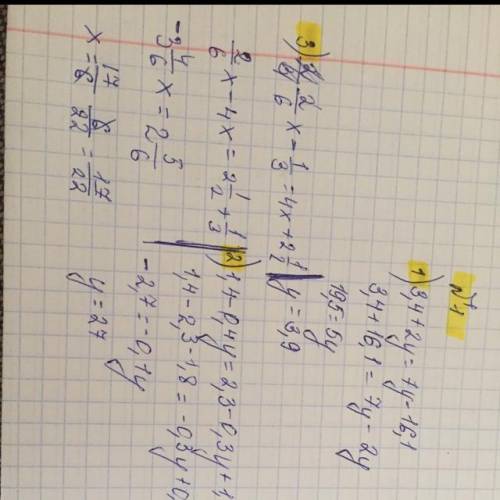 №1
1) 3,4+2y=7y-16,1
3,4+16,1=7y-2y
19,5=5y
y=3,9
2) 1,4-0,4y=2,3-0,3y+1,
1,4-2,3-1,8=-0,3y+0,
-2,7=-0,1y
y=27
3) 2/6 x - 1/3 = 4x + 2 1/2
2/6 x - 4x = 2 1/2 + 1/3
-3 4/6 x = 2 5/6
x = 17/6 6/22 = 17/22